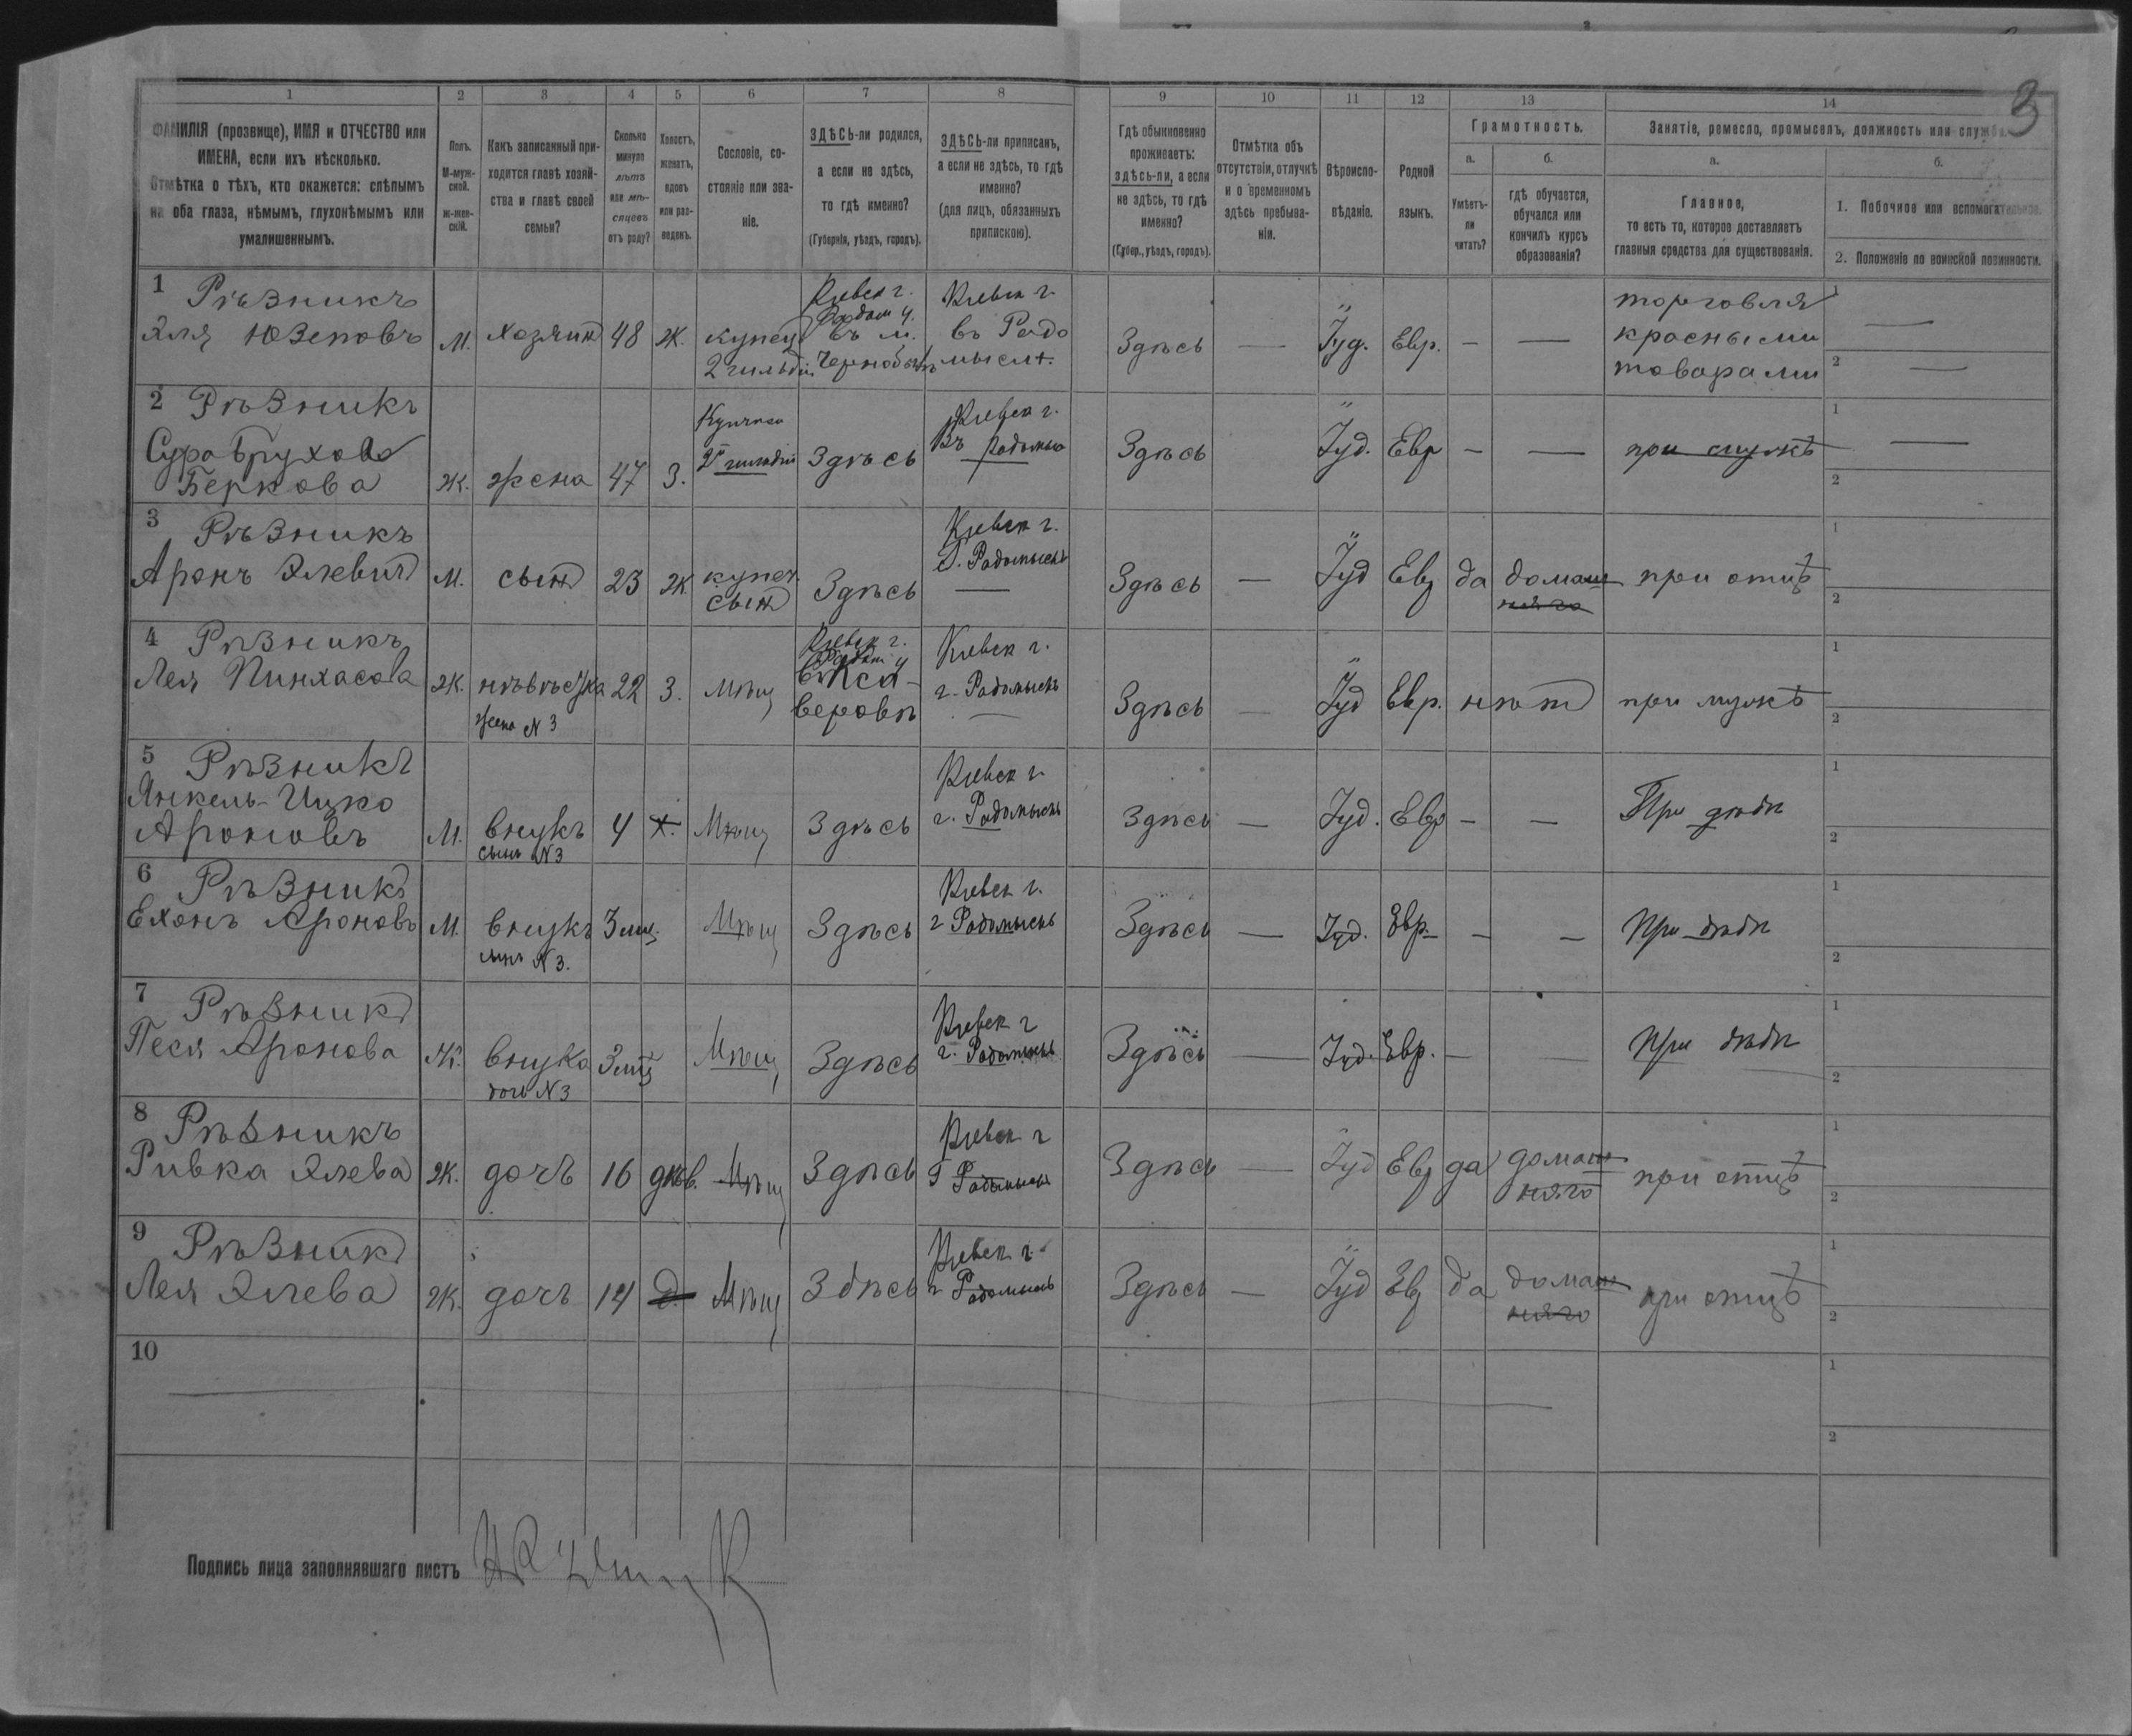 3
1 2 3 4 5 6 7 8 9 10 11 12 13 14
ФАМИЛІЯ (прозвище), ИМЯ и ОТЧЕСТВО или
ИМЕНА, если ихъ нѣсколько.
Отмѣтка о тѣхъ, кто окажется: слѣпымъ
на оба глаза, нѣмымъ, глухонѣмымъ или
умалишеннымъ.
Полъ.
М-муж-
ской.
Ж-жен-
скій.
Какъ записанный при-
ходится главѣ хозяй-
ства и главѣ своей
семьи?
Сколько
минуло
лѣтъ
или мѣ-
сяцевъ
отъ роду?
Холостъ,
женатъ,
вдовъ
или раз-
веденъ.
Сословіе, со-
стояніе или зва-
ніе.
ЗДѢСЬ-ли родился,
а если не здѣсь,
то гдѣ именно?
(Губернія, уѣздъ, городъ).
ЗДѢСЬ-ли приписанъ,
а если не здѣсь, то гдѣ
именно?
(для лицъ, обязанныхъ
припискою).
Гдѣ обыкновенно
проживаетъ:
здѣсь-ли, а если
не здѣсь, то гдѣ
именно?
(Губер., уѣздъ, городъ).
Отмѣтка объ
отсутствіи, отлучкѣ
и о временномъ
здѣсь пребыва-
ніи.
Вѣроиспо-
вѣданіе.
Родной
языкъ.
Грамотность.
а.
Умѣетъ-
ли
читать?
б.
гдѣ обучается,
обучался или
кончилъ курсъ
образованія?
Занятіе, ремесло, промыселъ, должность или служба.
а.
Главное,
то есть то, которое доставляетъ
главныя средства для существованія.
б.
1. Побочное или вспомогательное.
2. Положеніе по воинской повинности.
1 Рѣзникъ
Эля Юзеповъ
М. хозяинъ 48 Ж. купец
2 гильдіи
Кіевск г.
Радом у.
въ м.
Чернобылѣ
Кіевск г.
въ Радо
мыслѣ
Здѣсь — Іуд. Евр. — —
торговля
красными
товарами
1 —
2 —
2 Рѣзникъ
Сура Брухова
Беркова
Ж. жена 47 З.
2й гильдіи
Здѣсь
Кіевск г.
Въ Радомысл
Здѣсь Іуд. Евр — — при мужѣ
1 —
2
3 Рѣзникъ
Аронъ Элевич
М. сын 23 Ж. купеч.
сын
Здѣсь
Кіевск г.
г. Радомысль
—
Здѣсь — Іуд Евр да домаш
няго
при отцѣ
1
2
4 Рѣзникъ
Лея Пинхасова
Ж. невѣстка
жена N 3
22 З. Мѣщ
Кіевск г.
Радом у
веровѣ
Кіевск г.
г. Радомысль
—
Здѣсь — Іуд Евр. нѣт при мужѣ
1
2
5 Рѣзникъ
Янкель-Ицко
Ароновъ
М. внукъ
сынъ N3
4 х. Мѣщ Здѣсь
Кіевск г.
г. Радомысль
Здѣсь — Іуд. Евр — — При дѣдѣ
1
2
6 Рѣзникъ
Ехонъ Ароновъ
М. внукъ
сынъ N 3.
3 мѣс. Мѣщ Здѣсь
Кіевск г.
г Радомысль
Здѣсь — Іуд. Евр. — — При дѣдѣ
1
2
7 Рѣзникъ
Песя Аронова
Ж. внука
дочь N 3
Мѣщ Здѣсь
Кіевск г
г. Радомысль
Здѣсь — Іуд. Евр. — — При дѣдѣ
1
2
8 Рѣзникъ
Ривка Элева
Ж. дочь 16 дѣв. Мѣщ Здѣсь
Кіевск г
Г Радомысль
Здѣсь — Іуд Евр да домаш
няго
при отцѣ
1
2
9 Рѣзникъ
Лея Элева
Ж. дочь 14 д. Мѣщ Здѣсь
Кіевск г.
г Радомысль
Здѣсь — Іуд Евр да домаш
няго
при отцѣ
1
2
10
1
2
Подпись лица заполнявшаго листъ